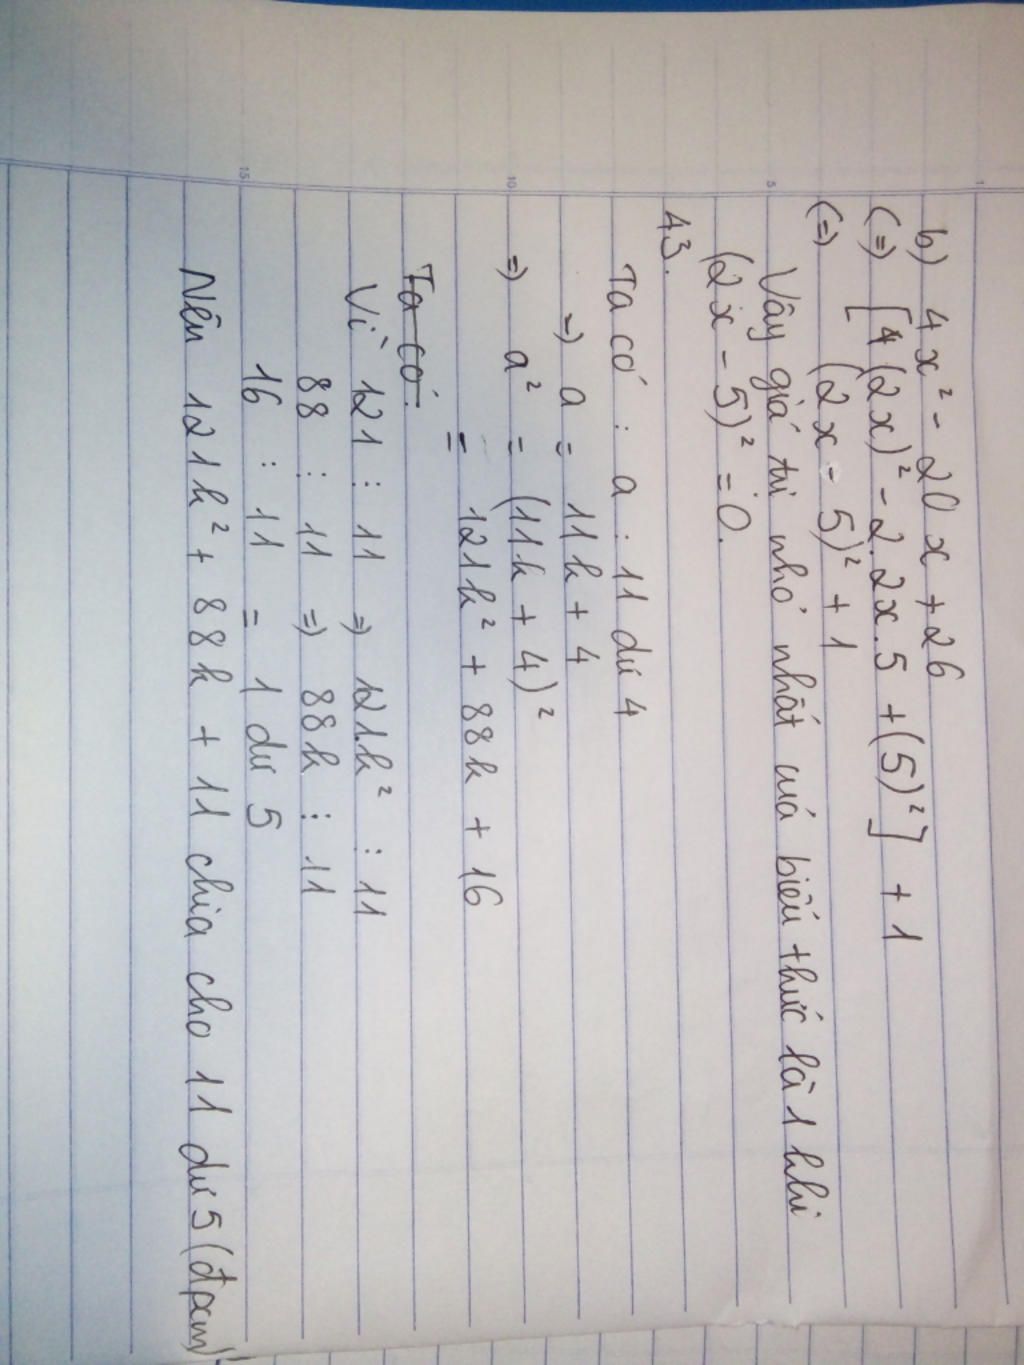 b) 4x² - 20x + 26
(=) [4(2x)² - 2.2x.5 + (5)²] + 1
(=) (2x - 5)² + 1
Vây giá tri nhỏ nhất cuả biểu thức là 1 khi
(2x - 5)² = 0.
43.
Ta có : a : 11 dư 4
=) a = 11k + 4
=) a² = (11k + 4)²
= 121k² + 88k + 16
Ta có:
Vì 121 ⋮ 11 =) 121k² ⋮ 11
88 ⋮ 11 =) 88k ⋮ 11
16 : 11 = 1 dư 5
Nên 121k² + 88k + 11 chia cho 11 dư 5 (đpcm)
1
5
10
15